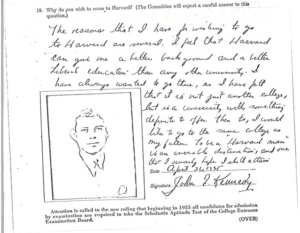 10. Why do you wish to come to Harvard? (The Committee will expect a careful answer to this
question.)
The reasons that I have for wishing to go
to Harvard are several. I feel that Harvard
can give me a better background and a better
liberal education than any other university. I
have always wanted to go there, as I have felt
that it is not just another college,
but is a university with something
definite to offer. Then too, I would
like to go to the same college as
my father. To be a "Harvard man"
is an enviable distinction, and one
that I sincerely hope I shall attain.
Date April 23, 1935
Signature John F. Kennedy
Attention is called to the new ruling that beginning in 1935 all candidates for admission
by examination are required to take the Scholastic Aptitude Test of the College Entrance
Examination Board.
(OVER)